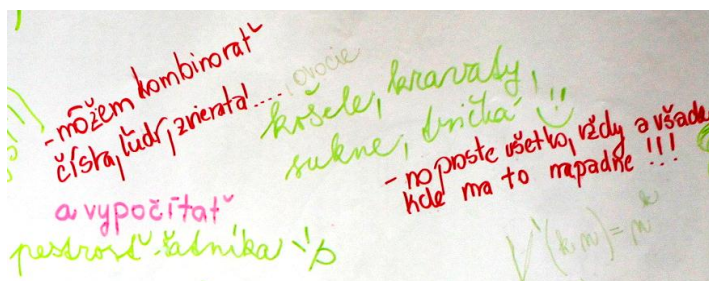 - môžem kombinovať
čísla, ľudí, zvieratá.... , ovocie
košele, kravaty,
sukne, tričká
- no proste všetko, vždy a všade
kde ma to napadne !!!
a vypočítať
pestrosť šatníka :P
V'(k,n) = n^k